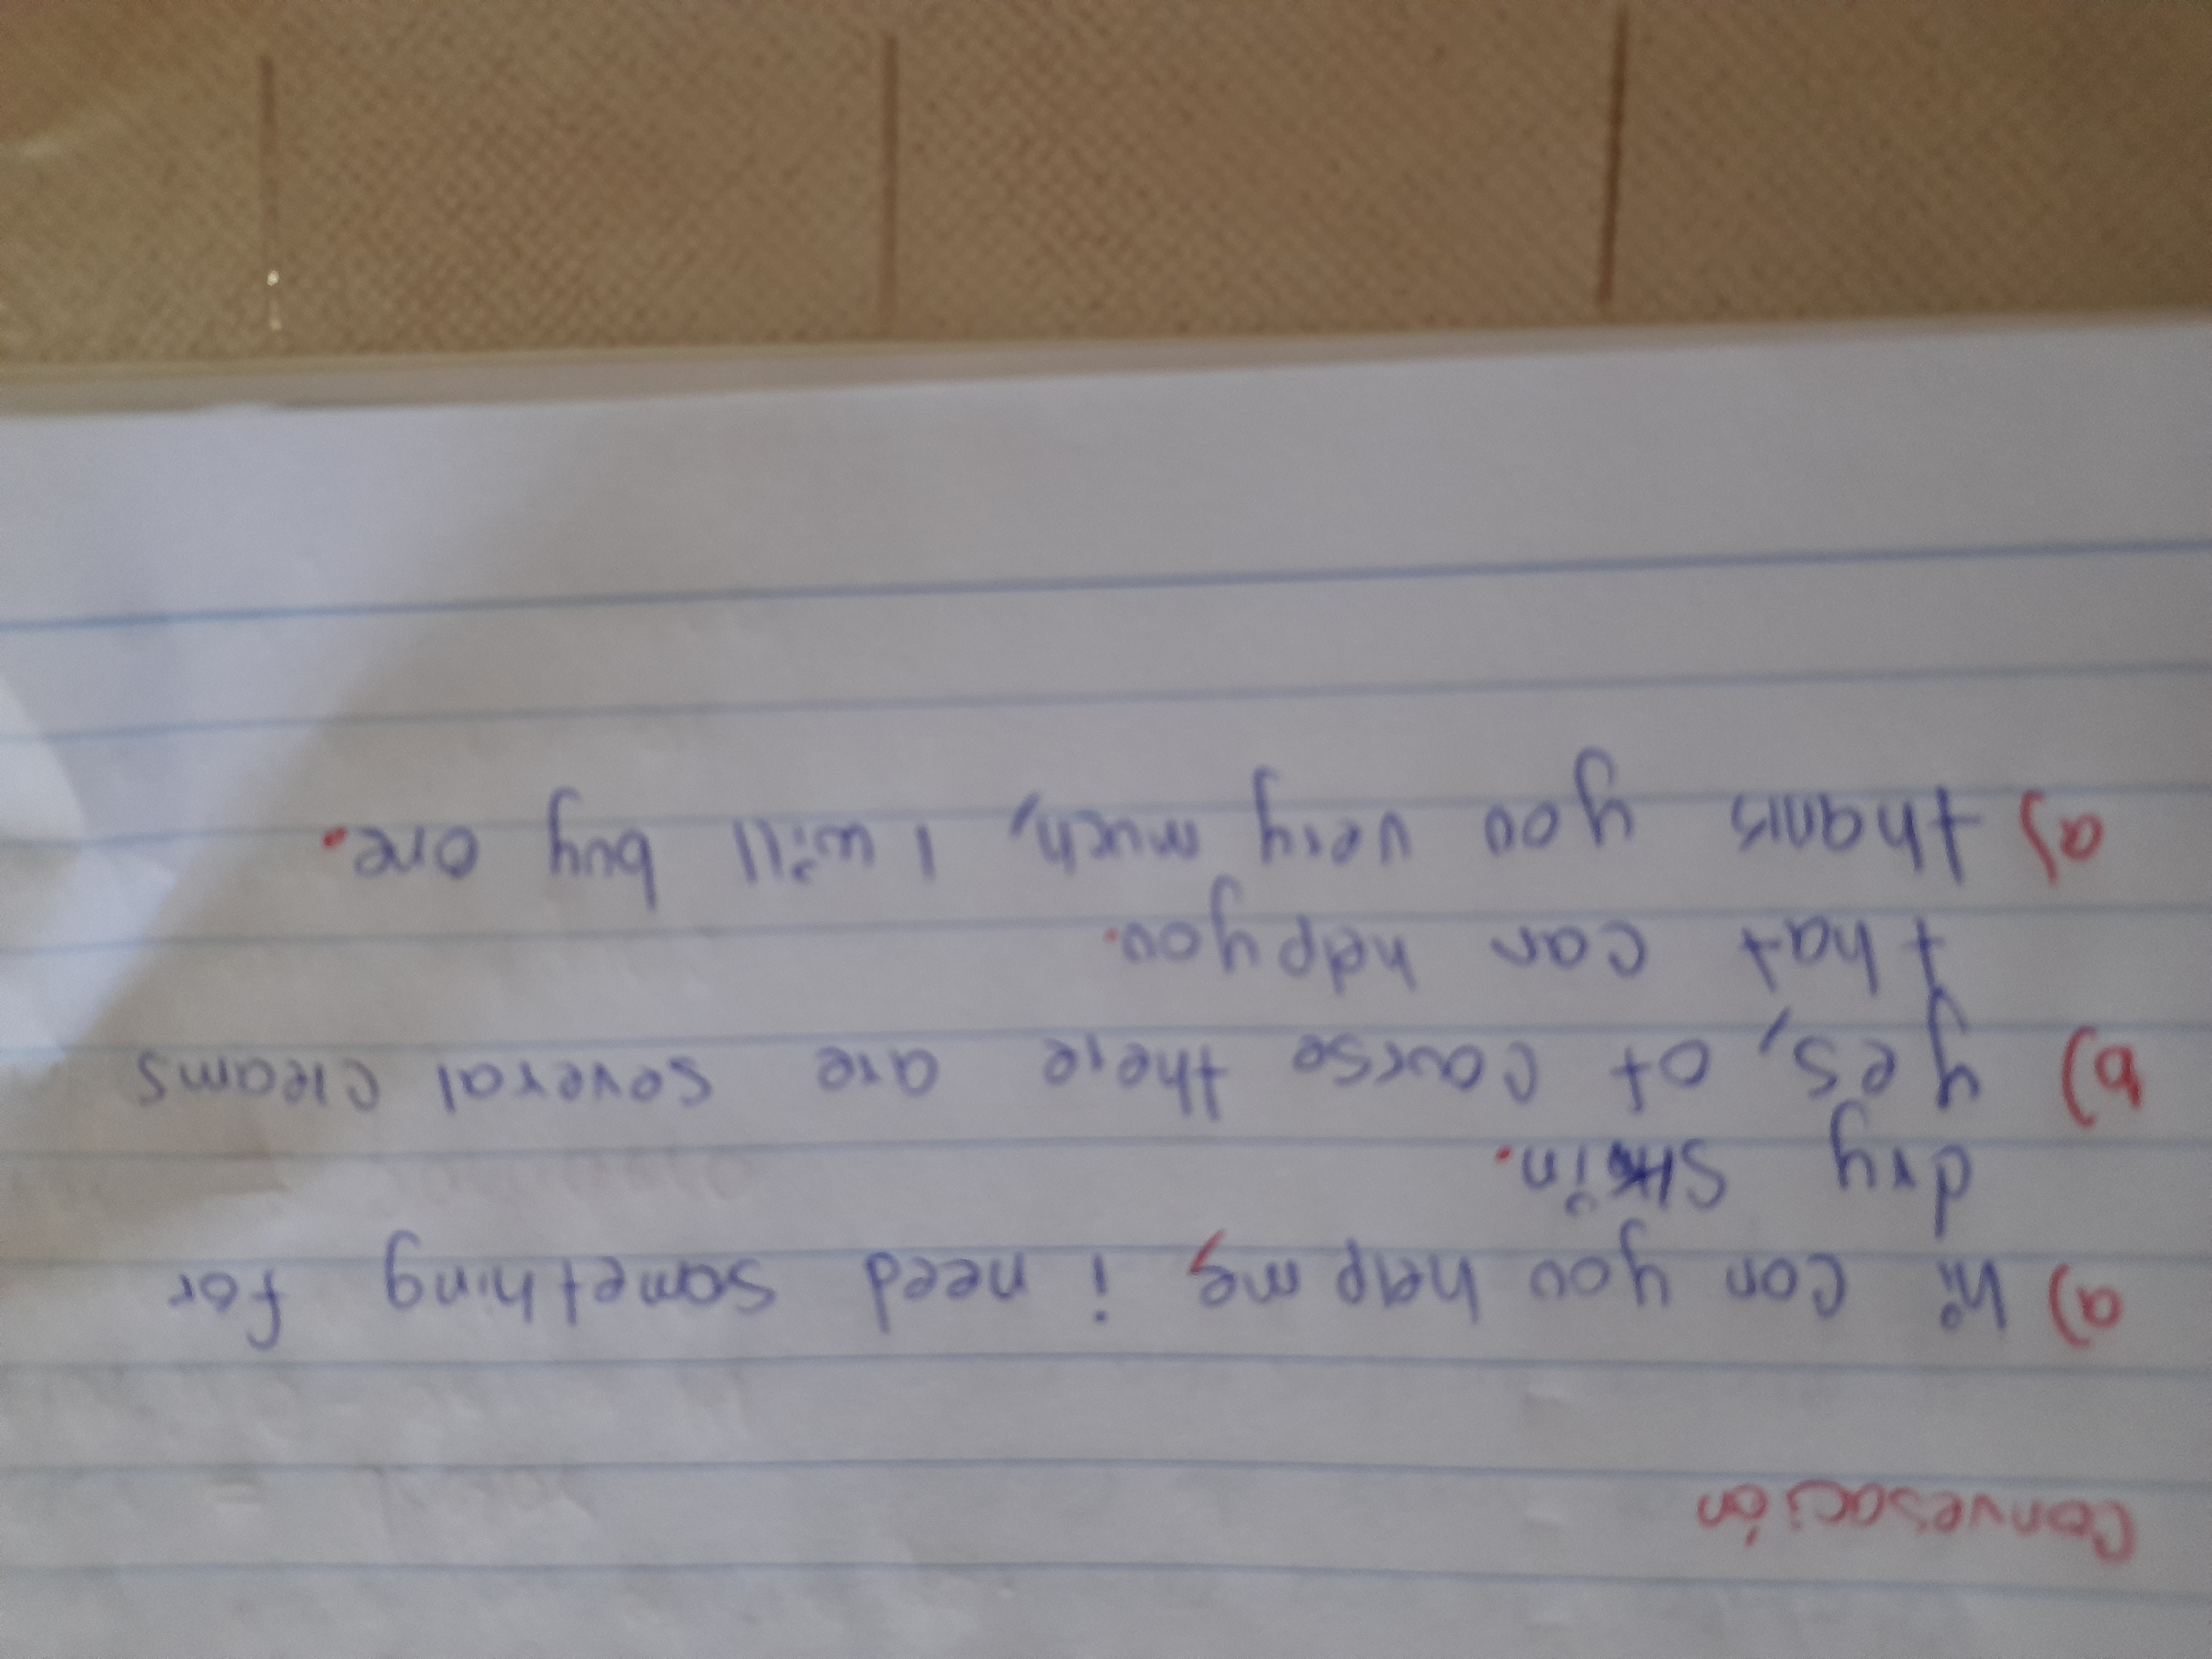 Convesación
a) hi can you help me, i need something for
dry skin.
b) yes, of course there are several creams
that can help you.
a) thanks you very much, I will buy one.